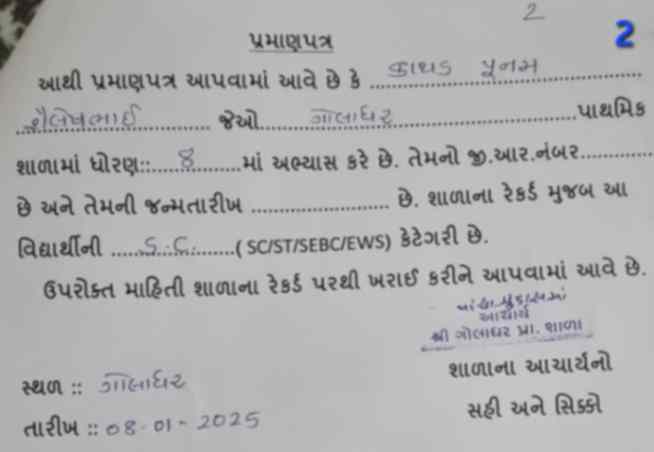 2
2
પ્રમાણપત્ર
આથી પ્રમાણપત્ર આપવામાં આવે છે કે ડાથડ પૂનમ
શૈલેષભાઈ જેઓ ગોલાધર પાથમિક
શાળામાં ધોરણ::....8....માં અભ્યાસ કરે છે. તેમનો જી.આર.નંબર............
છે અને તેમની જન્મતારીખ ...................... છે. શાળાના રેકર્ડ મુજબ આ
વિદ્યાર્થીની .....S.C......( SC/ST/SEBC/EWS) કેટેગરી છે.
ઉપરોક્ત માહિતી શાળાના રેકર્ડ પરથી ખરાઈ કરીને આપવામાં આવે છે.
આચાર્ય
શ્રી ગોલાધર પ્રા. શાળા
શાળાના આચાર્યનો
સ્થળ :: ગોલાધર
સહી અને સિક્કો
તારીખ :: 08-01-2025